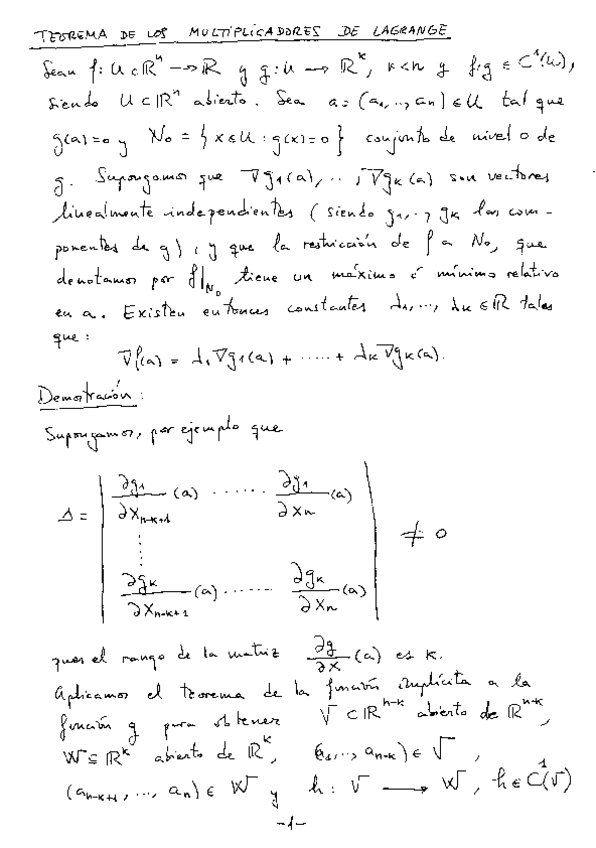 TEOREMA DE LOS MULTIPLICADORES DE LAGRANGE
Sean f: U ⊂ ℝⁿ → ℝ y g: U → ℝᵏ, k<n y f,g ∈ C¹(U),
siendo U ⊂ ℝⁿ abierto. Sea a = (a₁,..,aₙ) ∈ U tal que
g(a)=0 y N₀ = { x ∈ U : g(x)=0 } conjunto de nivel 0 de
g. Supongamos que ∇g₁(a),..,∇gₖ(a) son vectores
linealmente independientes (siendo g₁,..,gₖ las com-
ponentes de g), y que la restricción de f a N₀, que
denotamos por f|_N₀ tiene un máximo ó mínimo relativo
en a. Existen entonces constantes λ₁,..., λₖ ∈ ℝ tales
que:
∇f(a) = λ₁∇g₁(a) + ..... + λₖ∇gₖ(a).
Demostración:
Supongamos, por ejemplo que
Δ = | ∂g₁/∂xₙ₋ₖ₊₁ (a) ...... ∂g₁/∂xₙ (a) |
⋮
| ∂gₖ/∂xₙ₋ₖ₊₁ (a) ...... ∂gₖ/∂xₙ (a) | ≠ 0
pues el rango de la matriz ∂g/∂x (a) es k.
Aplicamos el teorema de la función implícita a la
función g para obtener V ⊂ ℝⁿ⁻ᵏ abierto de ℝⁿ⁻ᵏ,
W ⊆ ℝᵏ abierto de ℝᵏ, (a₁,.., aₙ₋ₖ) ∈ V,
(aₙ₋ₖ₊₁, ..., aₙ) ∈ W y h: V → W, h ∈ C¹(V)
-1-